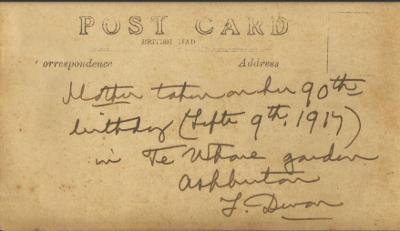 POST CARD
BRITISH MAD
orrespondence Address
Mother taken on her 90th
birthday (Septr 9th, 1917)
in Te Whare garden
Ashburton